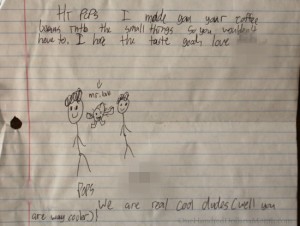 Hi PePs I made you your coffee
beans into the small things so you wouldn't
have to. I hope the taste good. love
mr. bob
PePS
We are real cool dudes (well you
are way cooler)!